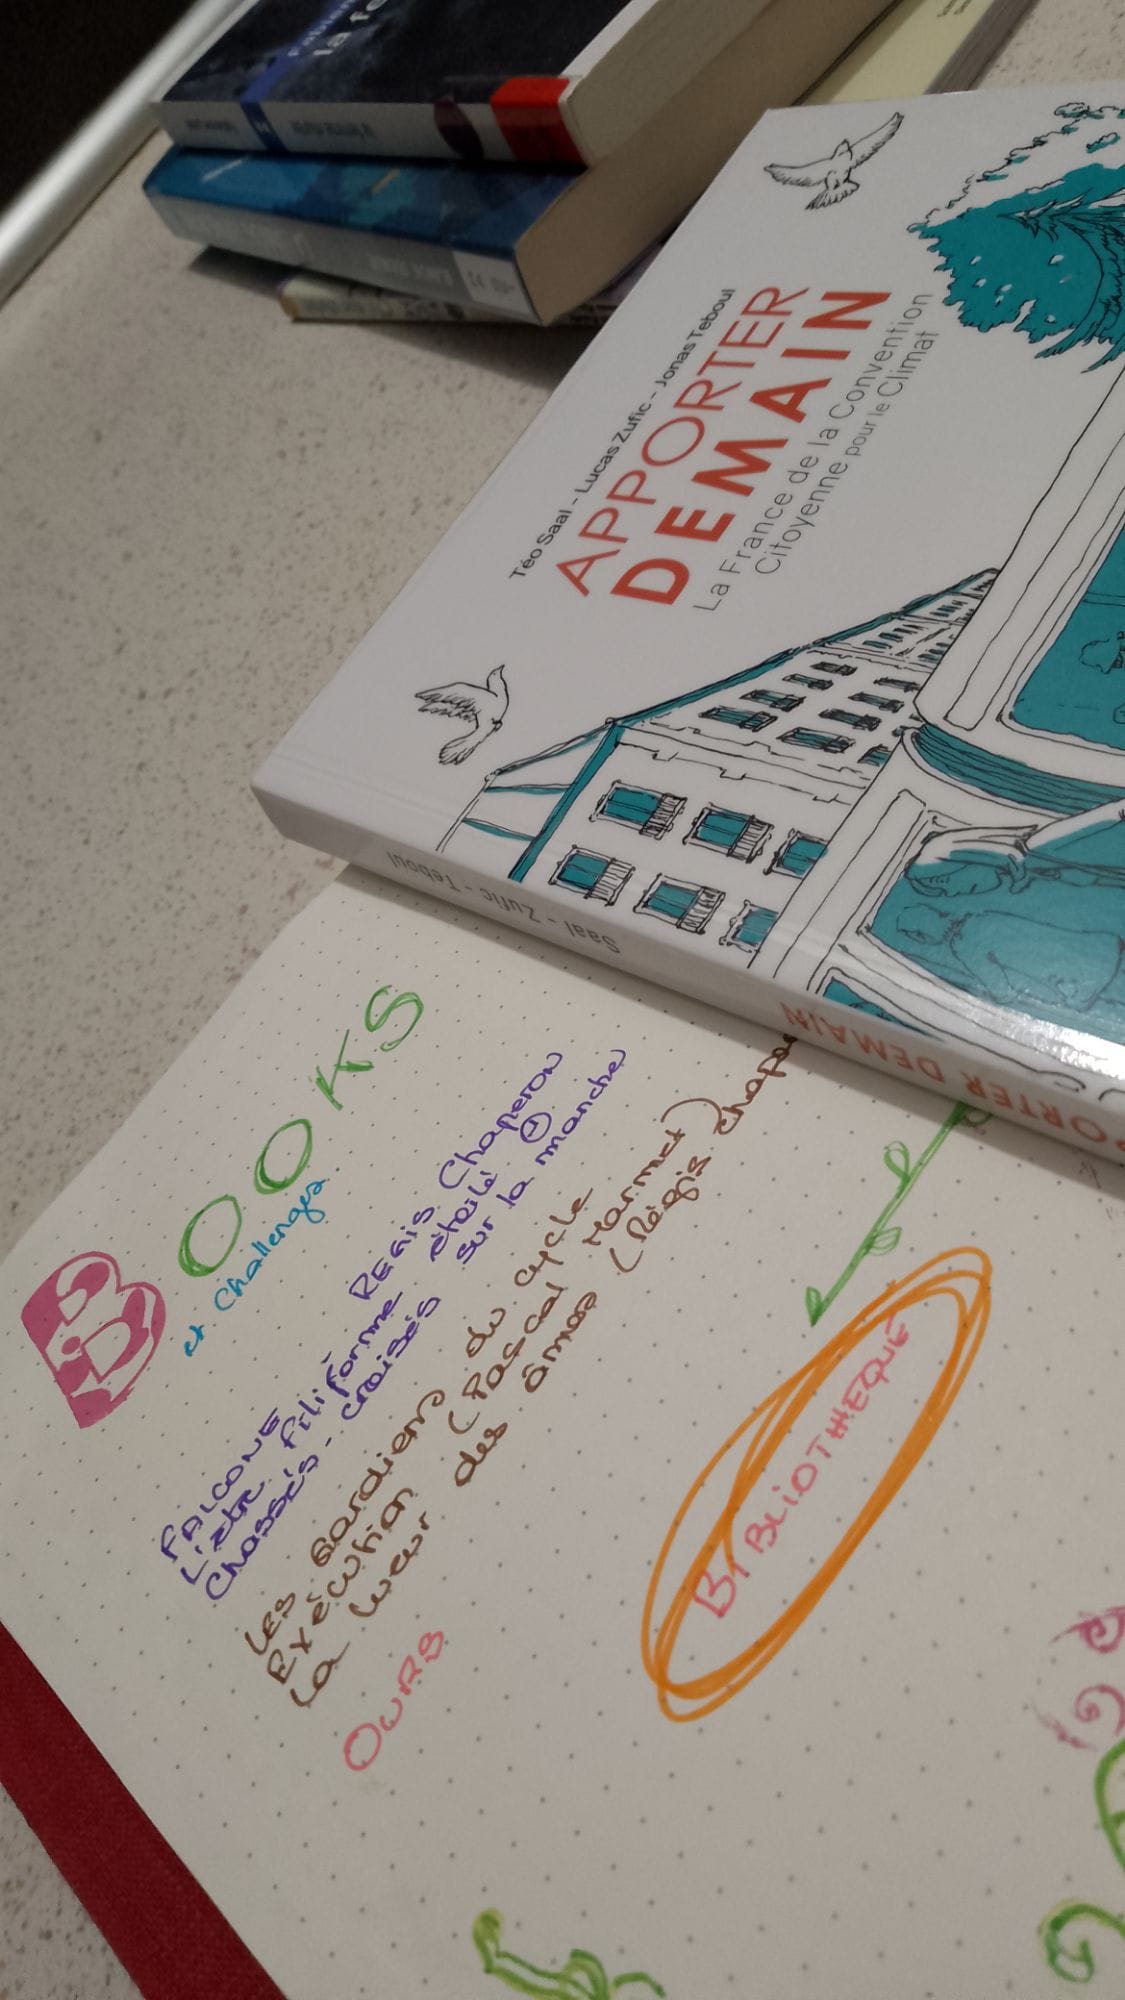 la fe
Téo Saal - Lucas Zufic - Jonas Teboul
APPORTER
DEMAIN
La France de la Convention
Citoyenne pour le Climat
Saal - Zufic - Teboul
PORTER DEMAIN
BOOKS
et challenges
FALCONE
L'être filiforme REGIS Chaperon
Chassés-croisés étoilé
sur la manche
LES Gardiens du cycle
Exécution (Pascal Marmet)
La lueur des âmes (Régis Chape
OURS
BIBLIOTHEQUE